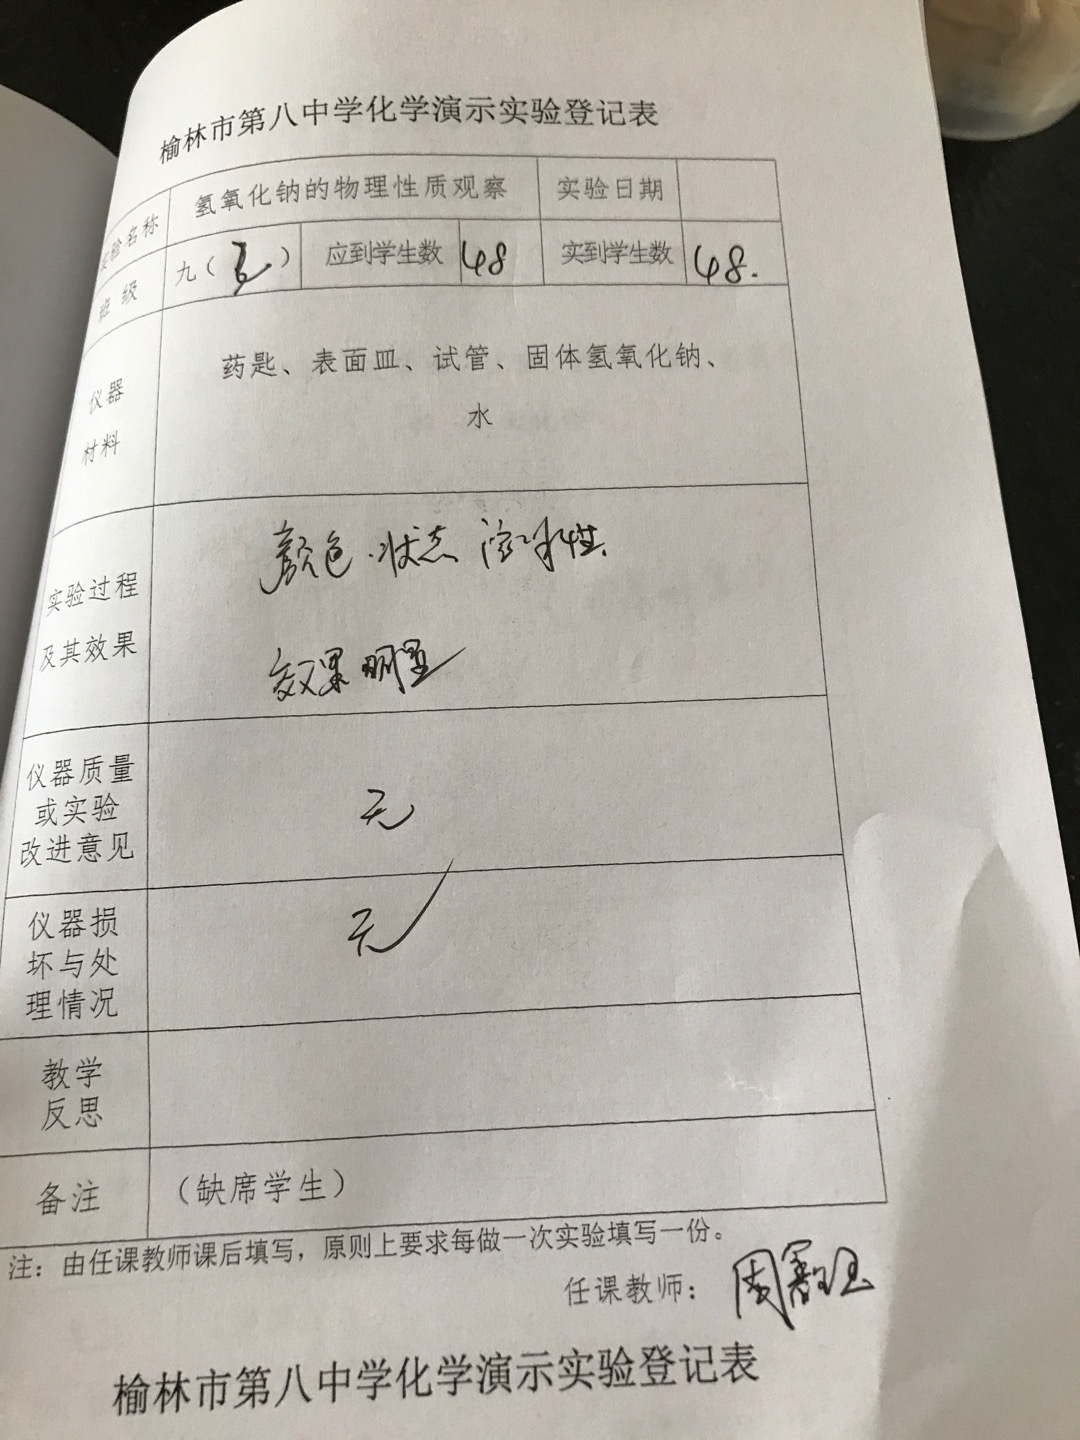 榆林市第八中学化学演示实验登记表
实验名称 氢氧化钠的物理性质观察 实验日期
班级 九（ ） 应到学生数 48 实到学生数 48.
仪器
材料
药匙、表面皿、试管、固体氢氧化钠、
水
实验过程
及其效果
颜色.状态 溶水性.
效果明显
仪器质量
或实验
改进意见
无
仪器损
坏与处
理情况
无
教学
反思
备注 （缺席学生）
注：由任课教师课后填写，原则上要求每做一次实验填写一份。
任课教师： 周
榆林市第八中学化学演示实验登记表